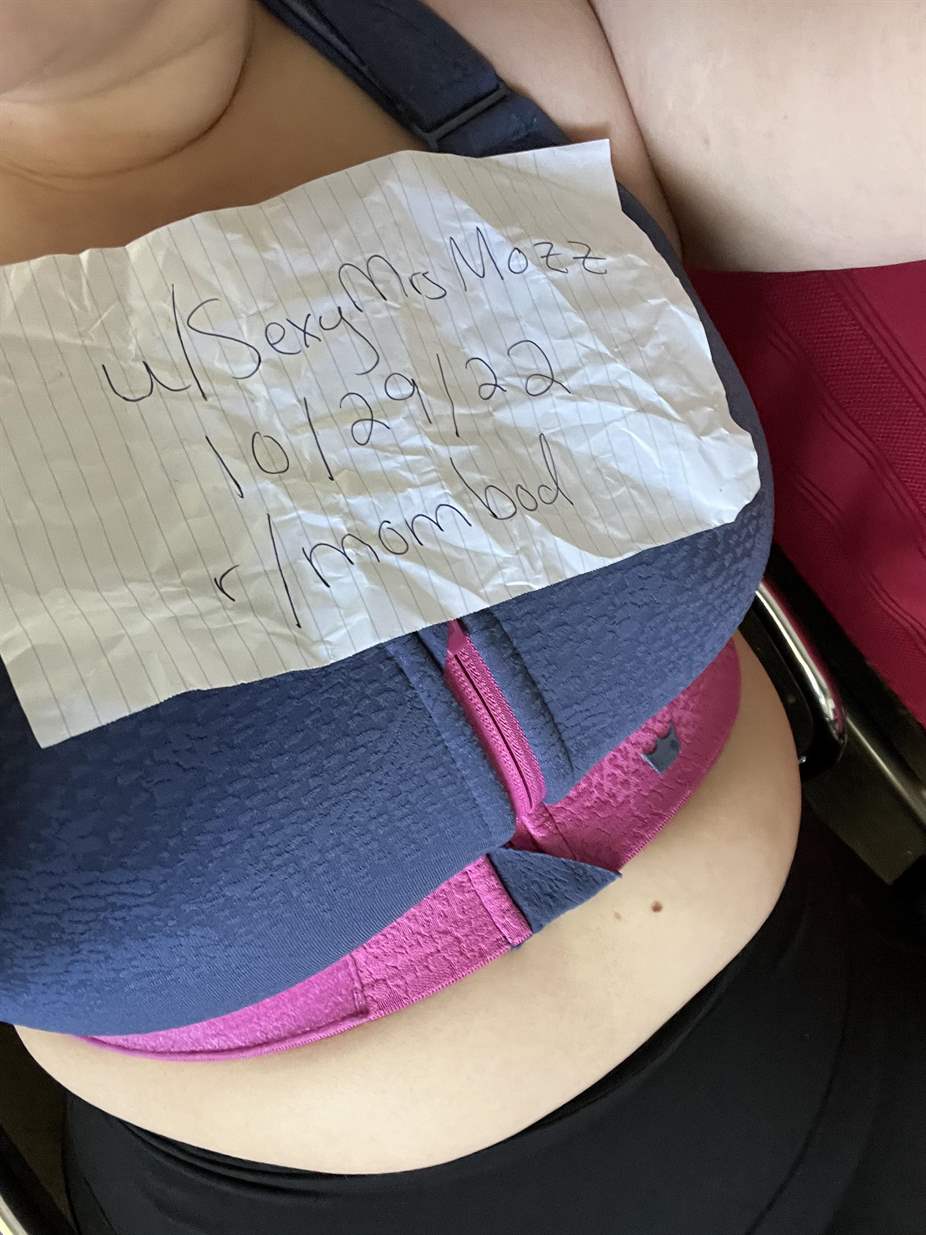 u/SexyMrsMozz
10/29/22
r/mombod